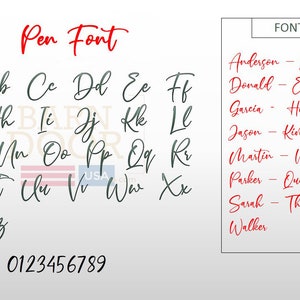 Pen Font
b Cc Dd Ee Ff
h Ii Jj Kk Ll
Nn Oo Pp Qq Rr
Uu Vv Ww Xx
z
0123456789
BARN
DOOR
USA
FONT
Anderson –
Donald – E
Garcia – H
Jason – Ki
Martin –
Parker – Qu
Sarah – Th
Walker